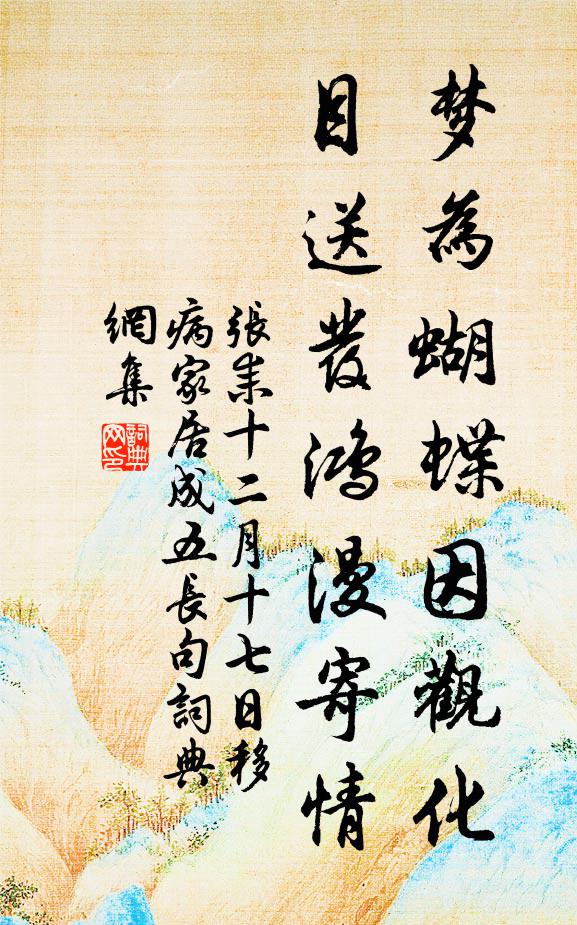 梦為蝴蝶因觀化
目送發鴻漫寄情
張耒十二月十七日移
病家居成五長句詞典
網集
詞典
网印